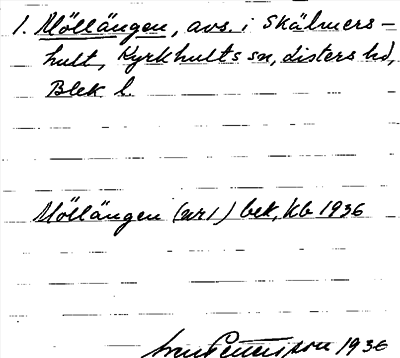 1. Möllängen, avs. i Skälmers-
hult, Kyrkhults sn, Listers hd,
Blek l.
Möllängen (nr 1) bek, Kb 1936
1936